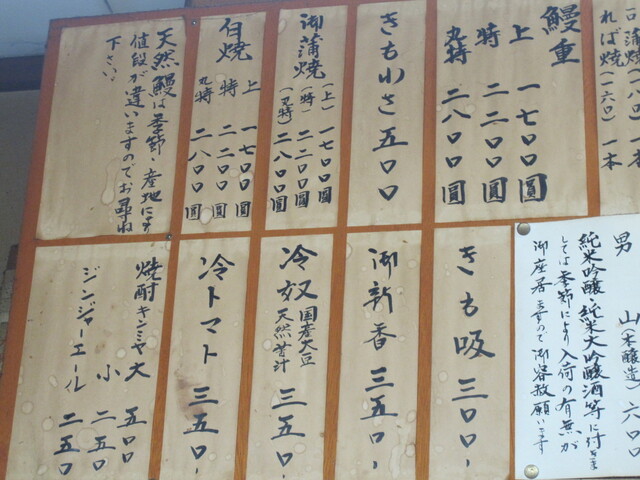 一口蒲焼(一八〇)一本
れば焼(一六〇)一本
鰻重
上 一七〇〇圓
特 二二〇〇圓
丸特 二八〇〇圓
きもわさ 五〇〇
御蒲焼
(上) 一七〇〇圓
(特) 二二〇〇圓
(丸特) 二八〇〇圓
白焼
上 一七〇〇圓
特 二二〇〇圓
丸特 二八〇〇圓
天然鰻は季節、産地により
値段が違いますのでお尋ね
下さい。
男 山(本醸造) 六〇〇
純米吟醸・純米大吟醸酒等に付きま
しては季節により入荷の有無が
御座居ますので御容赦願います
きも吸 三〇〇-
御新香 三五〇-
冷奴 国産大豆
天然苦汁 三五〇-
冷トマト 三五〇-
焼酎キンミヤ大 五〇〇
小 二五〇
ジンジャーエール 二五〇